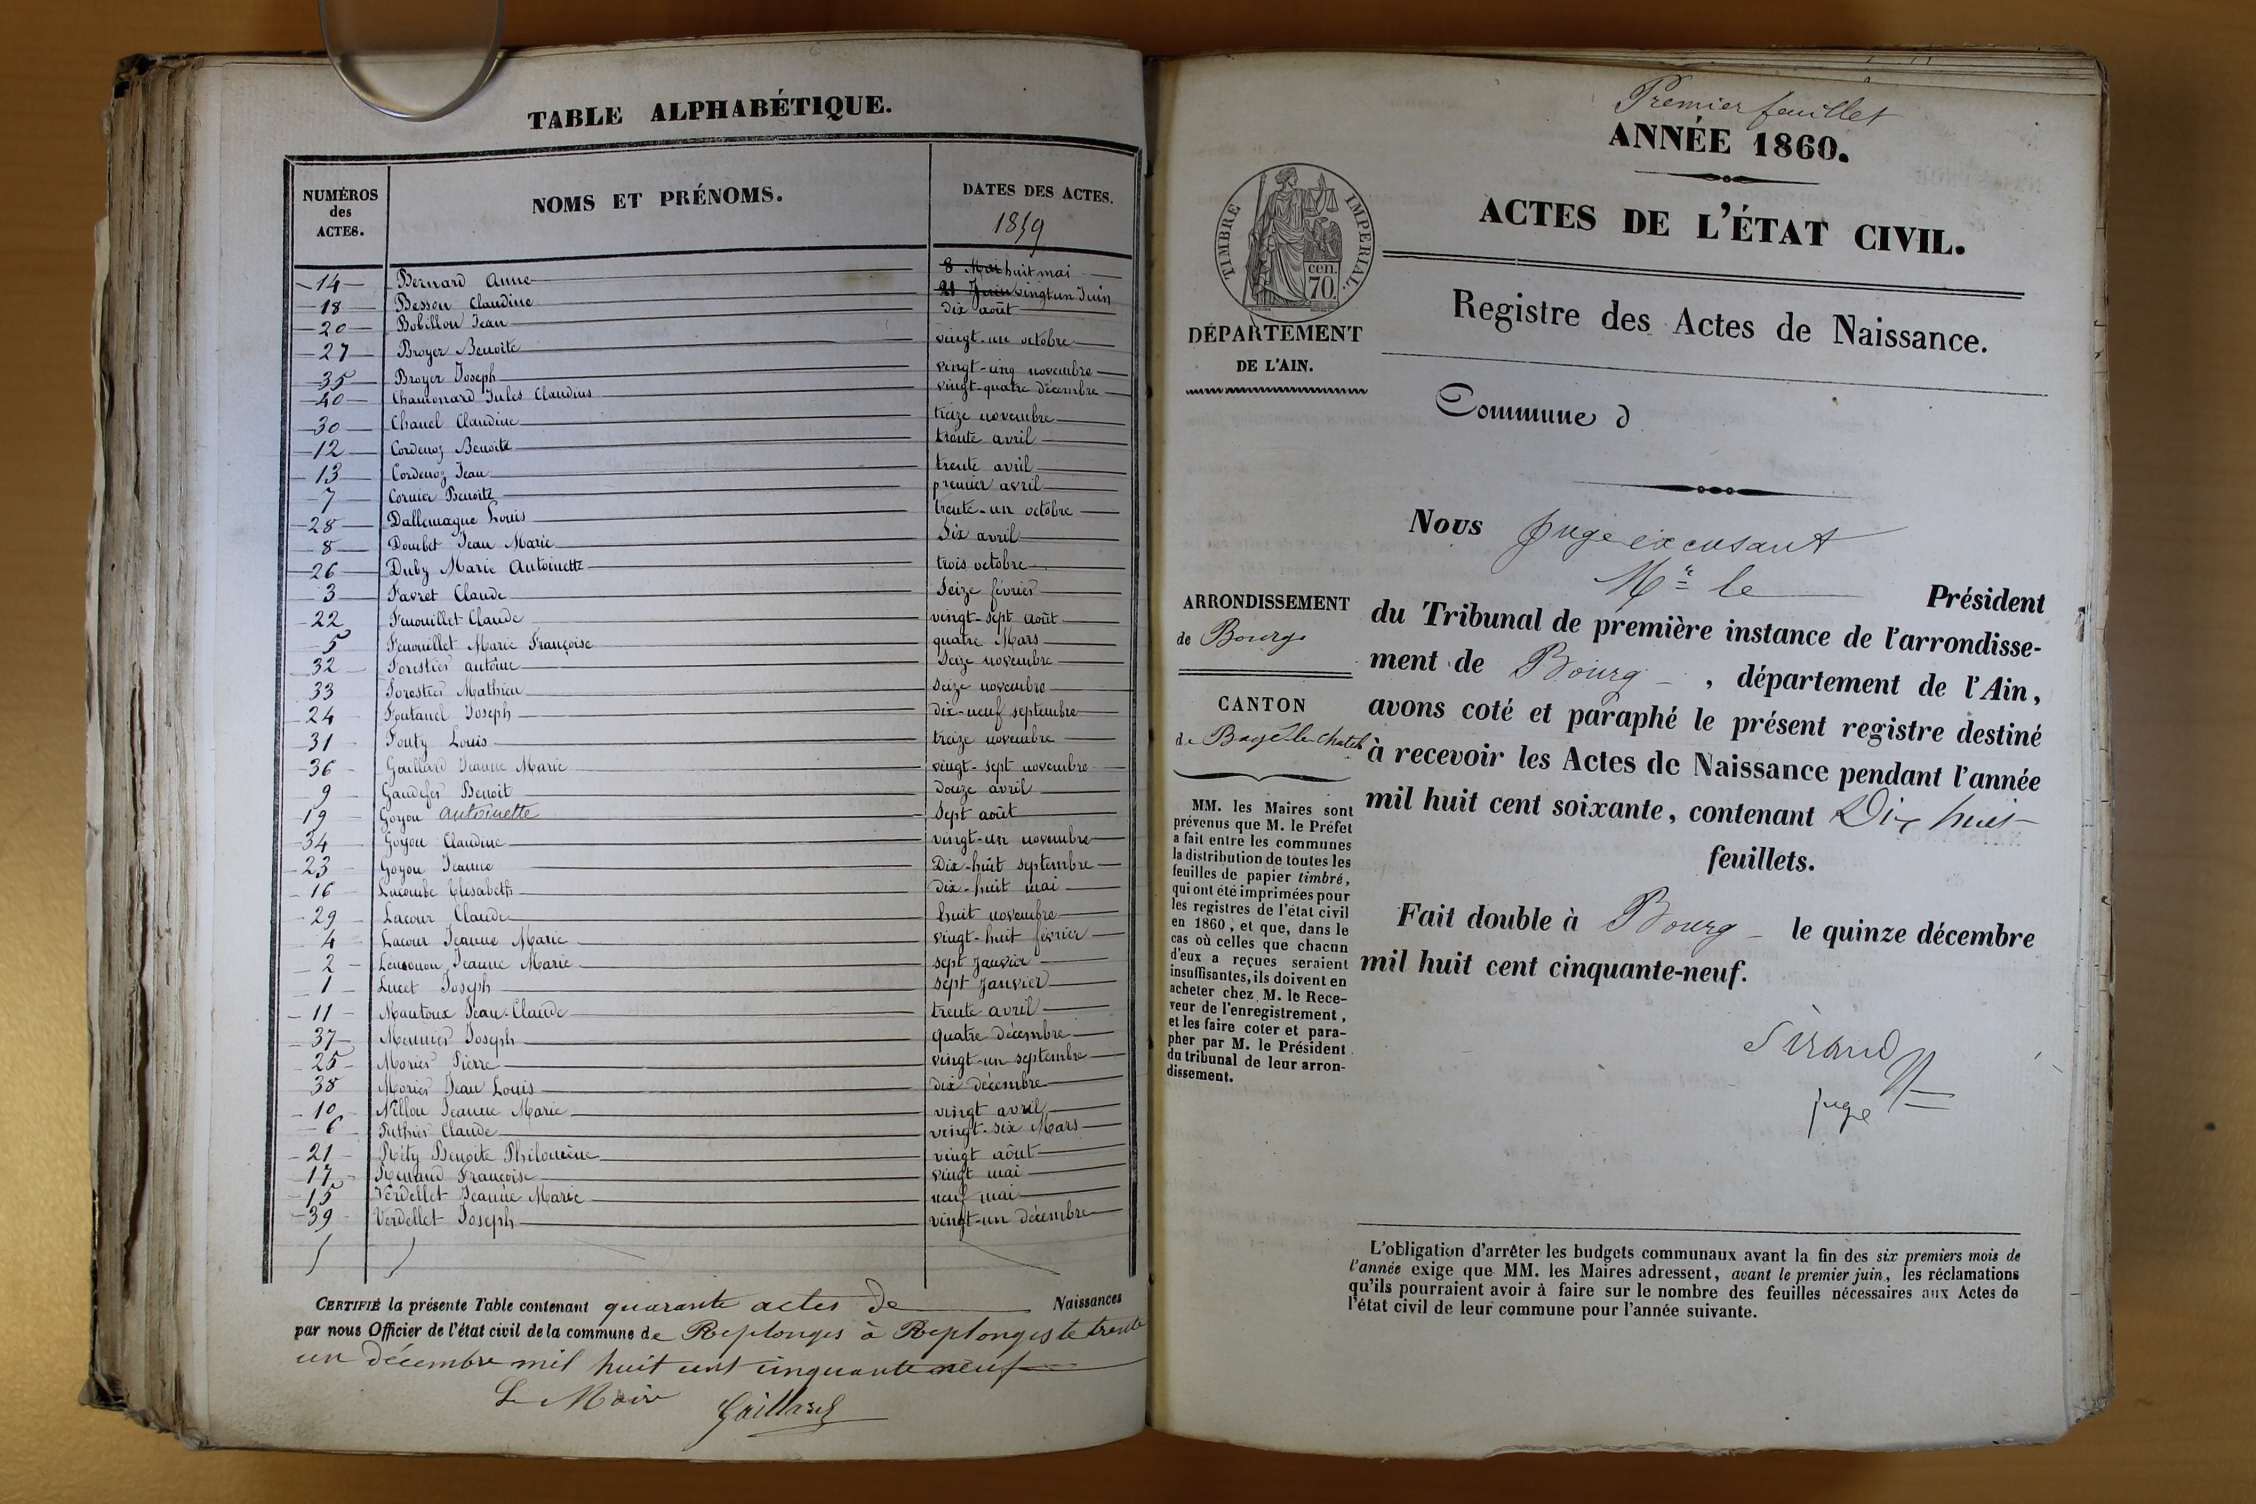 TABLE ALPHABÉTIQUE.
NUMÉROS des ACTES. NOMS ET PRÉNOMS. DATES DES ACTES. 1859
14 Bernard Anne 8 Mai huit mai
18 Besson Claudine 21 Juin vingt un Juin
20 Bobillon Jean dix août
27 Broyer Benoite vingt-un octobre
35 Broyer Joseph vingt-cinq novembre
40 Chamonard Jules Claudius vingt-quatre décembre
30 Chanel Claudine treize novembre
12 Cordenoz Benoite trente avril
13 Cordenoz Jean trente avril
7 Cornier Benoite premier avril
28 Dallemagne Louis trente-un octobre
8 Dombet Jean Marie Six avril
26 Duby Marie Antoinette trois octobre
3 Favret Claude Seize février
22 Fenouillet Claude vingt-sept août
5 Fenouillet Marie Françoise quatre Mars
32 Forestier antoine Seize novembre
33 Forestier Mathieu Seize novembre
24 Fontanel Joseph dix-neuf septembre
31 Fouty Louis treize novembre
36 Gaillard Jeanne Marie vingt-sept novembre
9 Gaudefer Benoit douze avril
19 Goyon antoinette Sept août
34 Goyon Claudine vingt-un novembre
23 Goyon Jeanne Dix-huit septembre
16 Lacombe Elisabeth dix-huit mai
29 Lacour Claude huit novembre
4 Lacour Jeanne Marie vingt-huit février
2 Jeanne Marie sept Janvier
1 Lucet Joseph sept Janvier
11 Mautoux Jean-Claude trente avril
37 Meunier Joseph quatre décembre
25 Morier Pierre vingt-un septembre
38 Morier Jean Louis dix décembre
10 Nillon Jeanne Marie vingt avril
6 Puthier Claude vingt-six Mars
21 Réty Benoite Philomène vingt août
17 Renaud Françoise vingt mai
15 Verdellet Jeanne Marie neuf mai
39 Verdellet Joseph vingt-un décembre
CERTIFIÉ la présente Table contenant quarante actes de Naissances
par nous Officier de l'état civil de la commune de Replonges à Replonges le trente
un décembre mil huit cent cinquante neuf
Le Maire Gaillard
Premier feuillet
ANNÉE 1860.
ACTES DE L'ÉTAT CIVIL.
TIMBRE IMPERIAL.
cen.
70.
Registre des Actes de Naissance.
DÉPARTEMENT
DE L'AIN.
Commune d
ARRONDISSEMENT
de Bourg
CANTON
de Bagé-le-Chatel
MM. les Maires sont
prévenus que M. le Préfet
a fait entre les communes
la distribution de toutes les
feuilles de papier timbré,
qui ont été imprimées pour
les registres de l'état civil
en 1860, et que, dans le
cas où celles que chacun
d'eux a reçues seraient
insuffisantes, ils doivent en
acheter chez M. le Rece-
veur de l'enregistrement,
et les faire coter et para-
pher par M. le Président
du tribunal de leur arron-
dissement.
Nous Juge excusant
Mr le Président
du Tribunal de première instance de l'arrondisse-
ment de Bourg , département de l'Ain,
avons coté et paraphé le présent registre destiné
à recevoir les Actes de Naissance pendant l'année
mil huit cent soixante, contenant Dix huit
feuillets.
Fait double à Bourg le quinze décembre
mil huit cent cinquante-neuf.
Sirand
juge
L'obligation d'arrêter les budgets communaux avant la fin des six premiers mois de
l'année exige que MM. les Maires adressent, avant le premier juin, les réclamations
qu'ils pourraient avoir à faire sur le nombre des feuilles nécessaires aux Actes de
l'état civil de leur commune pour l'année suivante.